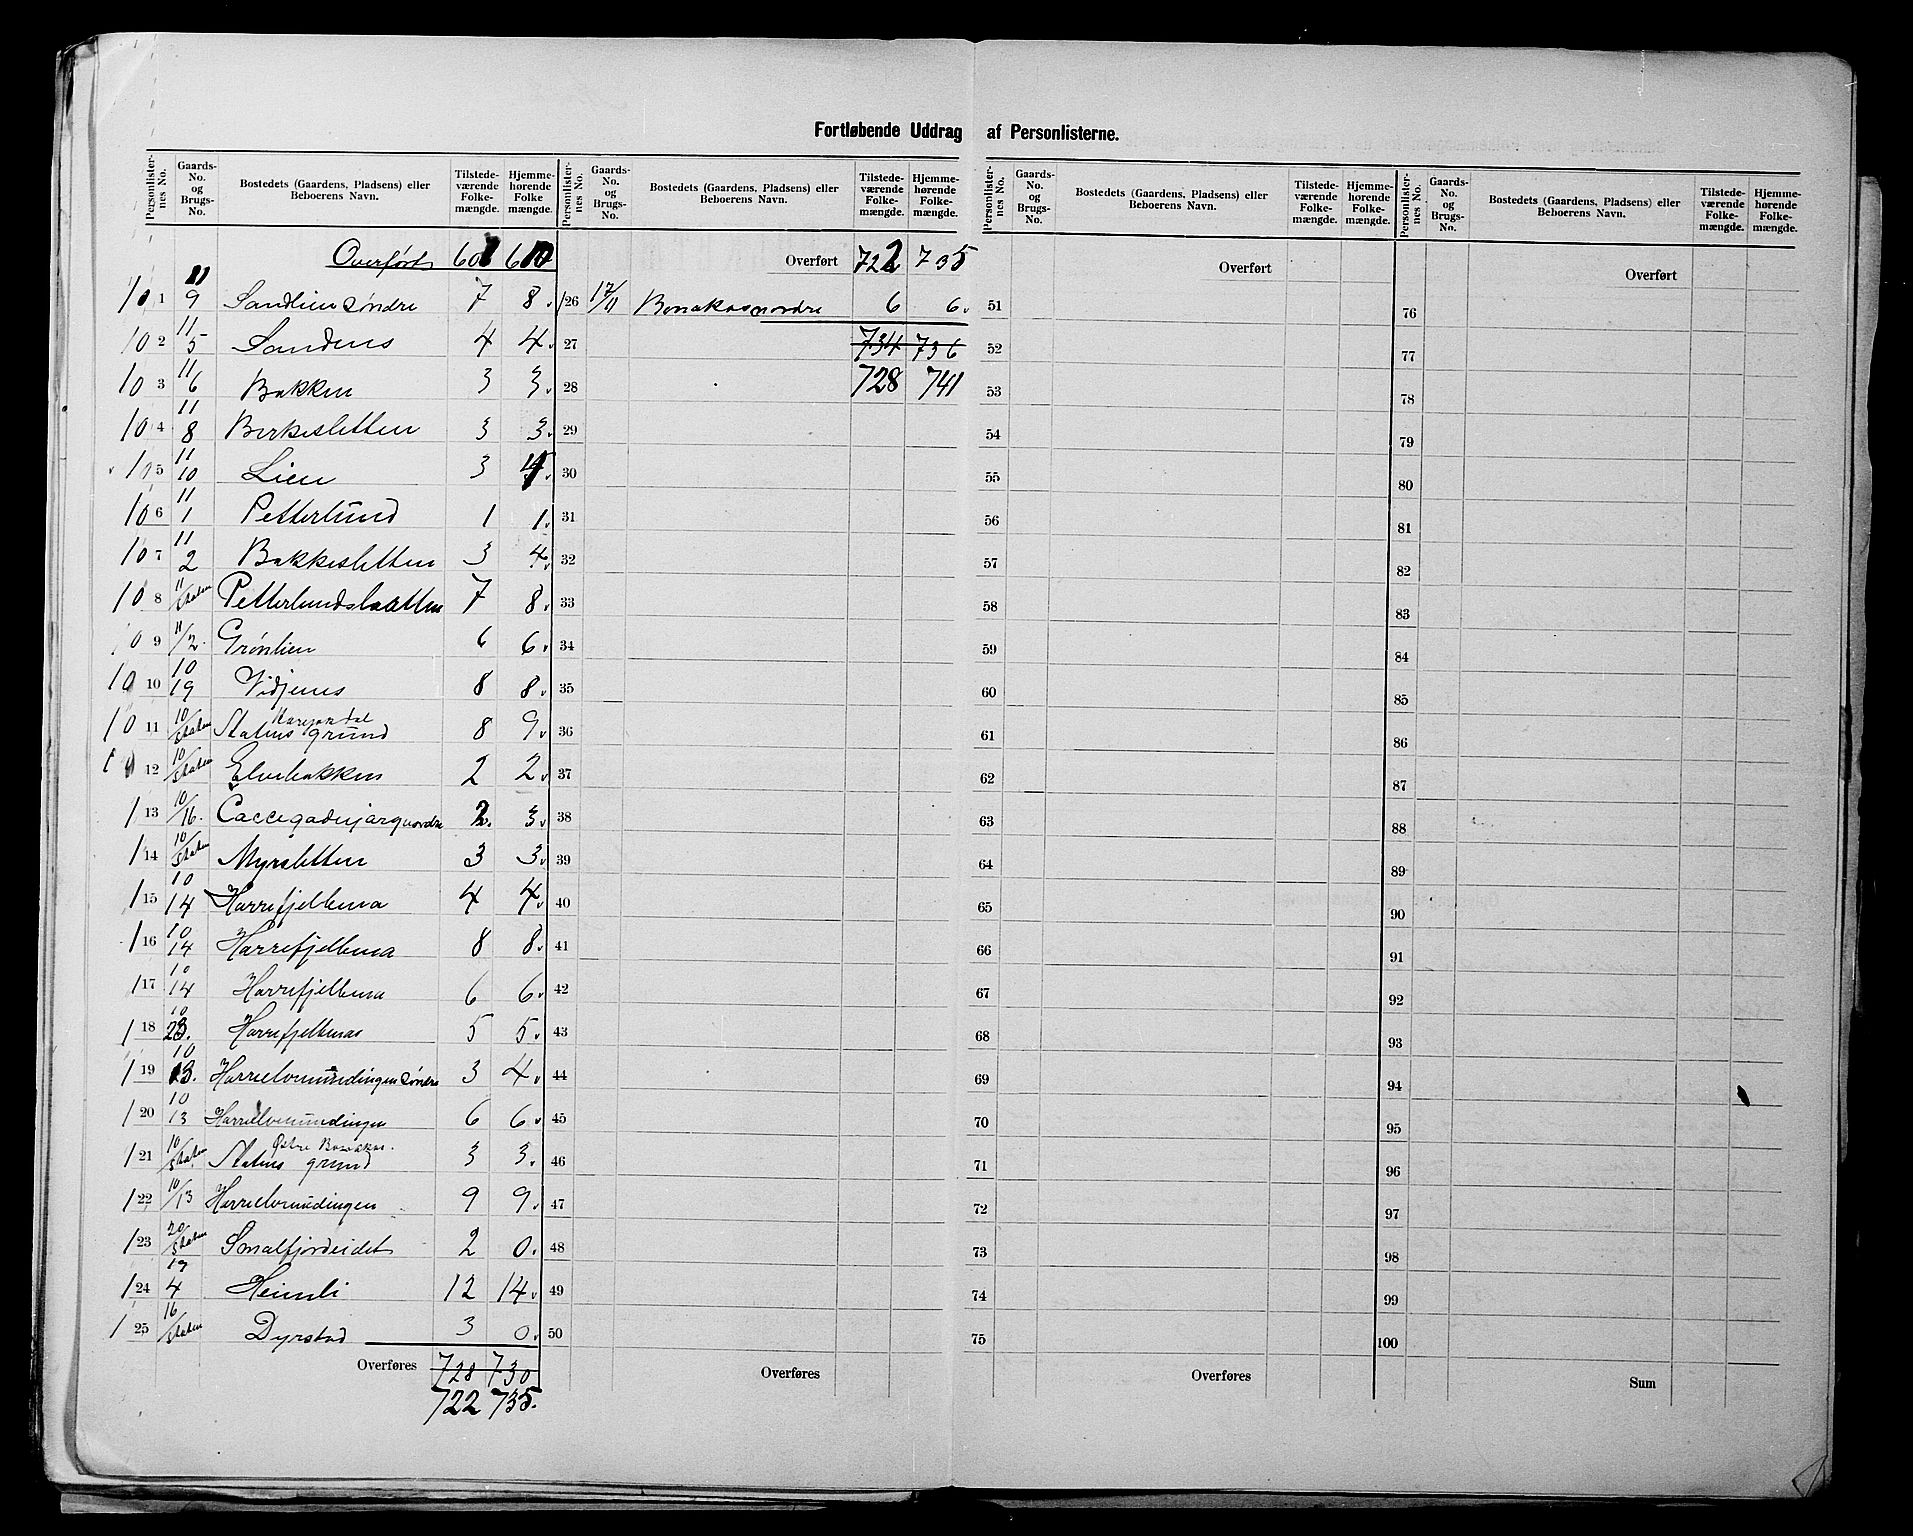 Fortløbende Uddrag af Personlisterne.
Personlister-nes No. Gaards-No. og Brugs-No. Bostedets (Gaardens, Pladsens) eller Beboerens Navn. Tilstede-værende Folke-mængde. Hjemme-hørende Folke mængde.
Overført 601 610
101 11/9 Sandlien søndre 7 8
102 11/5 Sandens 4 4
103 11/6 Bakken 3 3
104 11/8 Birkesletten 3 3
105 11/10 Lien 3
106 11/1 Petterlund 1 1
107 11/2 Bakkesletten 3 4
108 11/Staten Petterlundslaatten 7 8
109 11/2 Grønlien 6 6
10 10 10/19 Vidjenes 8 8
10 11 10/Staten Statens grund 8 9
12 10/Staten Elvebakken 2 2
1 13 10/16 Caccegadnjarg nordre 2 3
1 14 10/Staten Myrsletten 3 3
1 15 10/14 Harrefjellema 4 4
1 16 10/14 Harrefjellema 8 8
1 17 10/14 Harrefjellema 6 6
1 18 10/23 Harrefjellenas 5 5
1 19 10/13 Harrelvmundingen søndre 3 4
1 20 10/13 Harrelvmundingen 6 6
1 21 10/Staten Østre Bonakas. Statens grund 3 3
1 22 10/13 Harrelvmundingen 9 9
1 23 20/Staten Smalfjordeidet 2 0
1 24 19/4 Heimli 12 14
1 25 16/Staten Dyrstad 3 0
Overføres 728 730
722 735
Personlister-nes No. Gaards-No. og Brugs-No. Bostedets (Gaardens, Pladsens) eller Beboerens Navn. Tilstede-værende Folke-mængde. Hjemme-hørende Folke-mængde.
Overført 722 735
1 26 17/11 Bonakas nordre 6 6
27 734 736
28 728 741
29
30
31
32
33
34
35
36
37
38
39
40
41
42
43
44
45
46
47
48
49
50
Overføres
Personlister-nes No. Gaards-No. og Brugs-No. Bostedets (Gaardens, Pladsens) eller Beboerens Navn. Tilstede-værende Folke-mængde. Hjemme-hørende Folke-mængde.
Overført
51
52
53
54
55
56
57
58
59
60
61
62
63
64
65
66
67
68
69
70
71
72
73
74
75
Overføres
Personlister-nes No. Gaards-No. og Brugs-No. Bostedets (Gaardens, Pladsens) eller Beboerens Navn. Tilstede-værende Folke-mængde. Hjemme-hørende Folke-mængde.
Overført
76
77
78
79
80
81
82
83
84
85
86
87
88
89
90
91
92
93
94
95
96
97
98
99
100
Sum